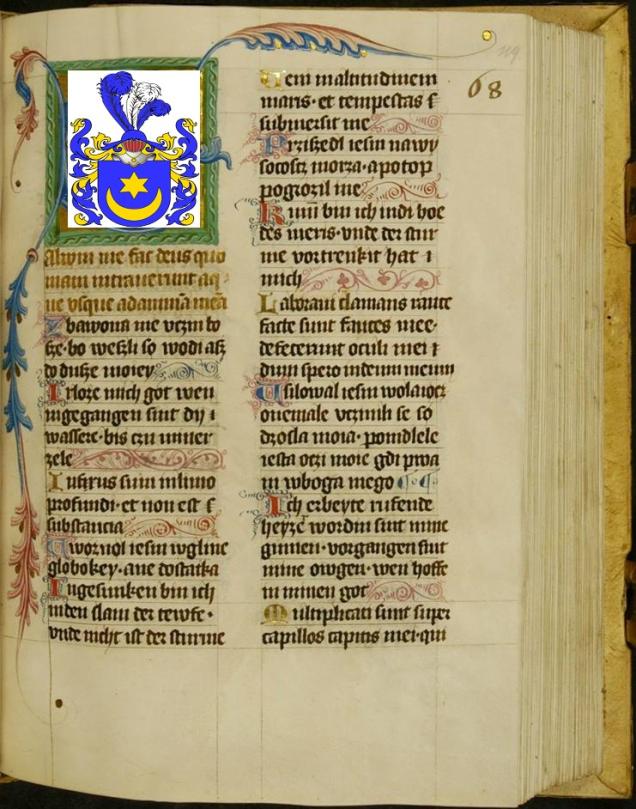 aluum me fac deus quo
niam intrauerunt aq
ue vsque ad animā meā
Zbawona me vczin bo
sze· bo weszli so wodi asz
do dusze moiey
Irloze mich got wen
ingegangen sint dy i
wassere· bis czu miner
zele
Infixus sum in limo
profundi· et non est ſ
substancia
Uworznol iesm w glinie
globokey· a ne dostatka
Ingesunken bin ich
in den slam der tewfe·
vnde nicht ist der sturme
Ueni in altitudinem
maris· et tempestas ſ
submersit me
Prziszedl iesm na wy
socoscz morza· a potop
pogrozil me
Kumē bin ich in di hoe
des meris· vnde der stur
me vortrenkit hat i
mich
Laboraui clamans rauce
facte sunt fauces mee·
defecerunt oculi mei ꝛ
dum spero in deum meum
Usilowal iesm wolaiocz
oniemale vczinili se so
dzosla moia· pomdlele
iesta oczi moie gdi pwa
m w boga mego
Ich erbeyte rufende
heyze wordin sint mine
gumen· vorgangen sint
mine owgen· wen hoffe
in minen got
Multiplicati sunt super
capillos capitis mei· qui
68
119